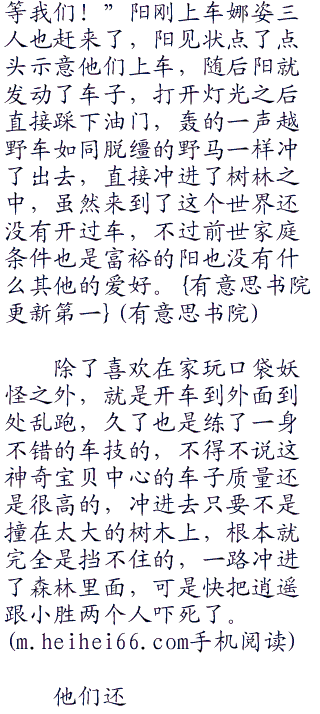 等我们！”阳刚上车娜姿三
人也赶来了，阳见状点了点
头示意他们上车，随后阳就
发动了车子，打开灯光之后
直接踩下油门，轰的一声越
野车如同脱缰的野马一样冲
了出去，直接冲进了树林之
中，虽然来到了这个世界还
没有开过车，不过前世家庭
条件也是富裕的阳也没有什
么其他的爱好。{有意思书院
更新第一}(有意思书院)
除了喜欢在家玩口袋妖
怪之外，就是开车到外面到
处乱跑，久了也是练了一身
不错的车技的，不得不说这
神奇宝贝中心的车子质量还
是很高的，冲进去只要不是
撞在太大的树木上，根本就
完全是挡不住的，一路冲进
了森林里面，可是快把逍遥
跟小胜两个人吓死了。
(m.heihei66.com手机阅读)
他们还